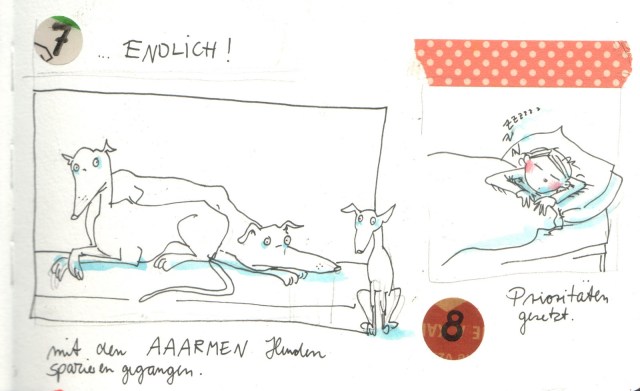 7
... ENDLICH!
mit den AAARMEN Hunden
spazieren gegangen.
ZZZZZ
8
Prioritäten
gesetzt.